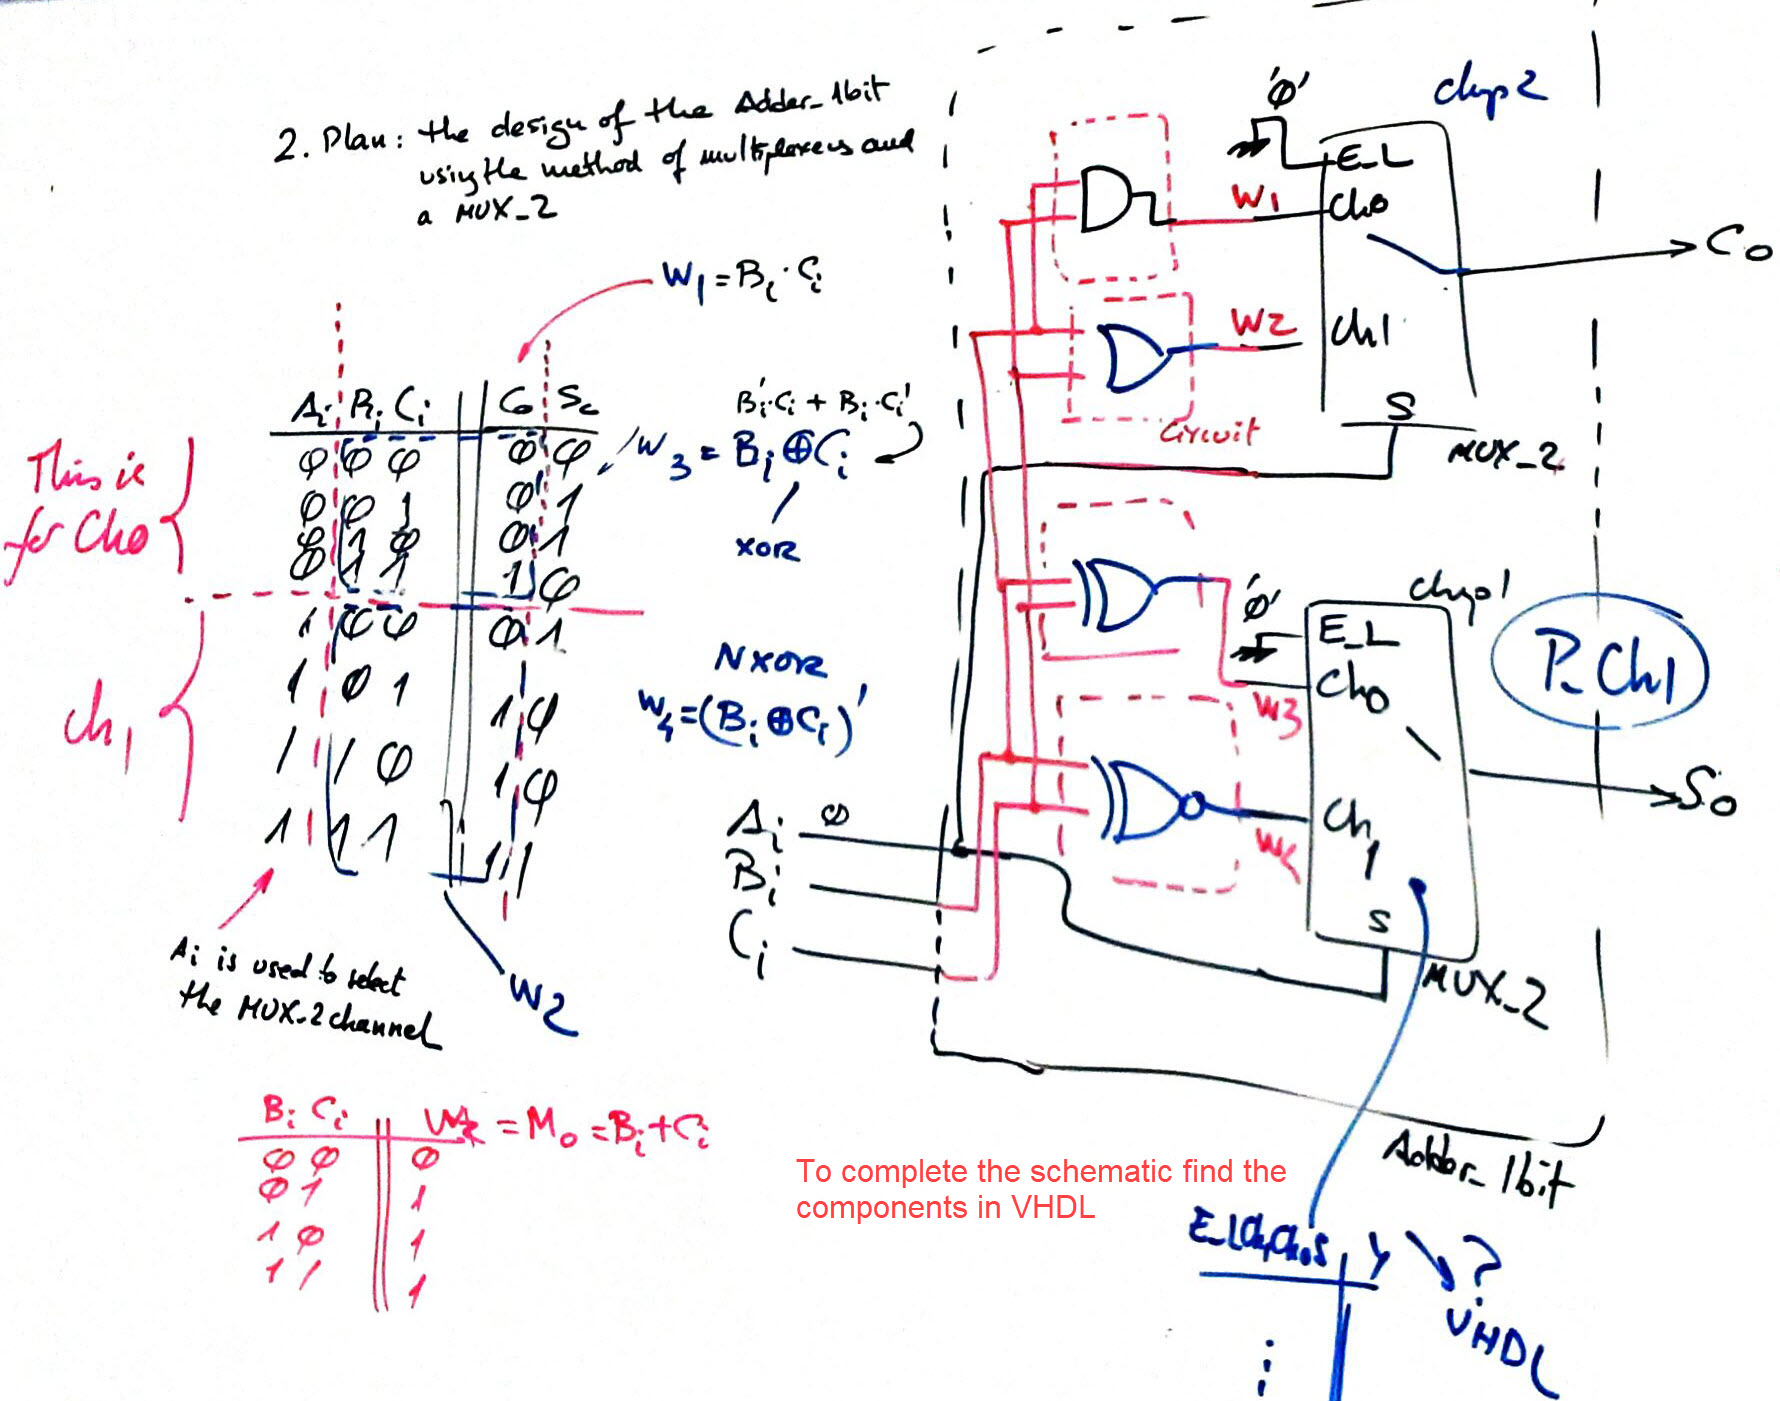 2. Plan: the design of the Adder_1bit
using the method of multiplexers and
a MUX_2
W1 = Bi · Ci
Ai Bi Ci Co So
φ φ φ φ φ
φ φ 1 φ 1
φ 1 φ φ 1
φ 1 1 1 φ
1 φ φ φ 1
1 φ 1 1 φ
1 1 φ 1 φ
1 1 1 1 1
This is
for Ch0
ch1
Bi'·Ci + Bi·Ci'
W3 = Bi ⊕ Ci
XOR
NXOR
W4 = (Bi ⊕ Ci)'
Ai is used to select
the MUX_2 channel
W2
Bi Ci = M0 = Bi + Ci
φ φ φ
φ 1 1
1 φ 1
1 1 1
'φ'
chip2
E_L
W1
Ch0
Co
W2
Ch1
S
Circuit
MUX_2
chip1
'φ'
E_L
Ch0
W3
P_Ch1
So
Ch1
W4
S
MUX_2
Ai φ
Bi
Ci
Adder_1bit
To complete the schematic find the
components in VHDL
E_L Ch1 Ch0 S y ?
VHDL